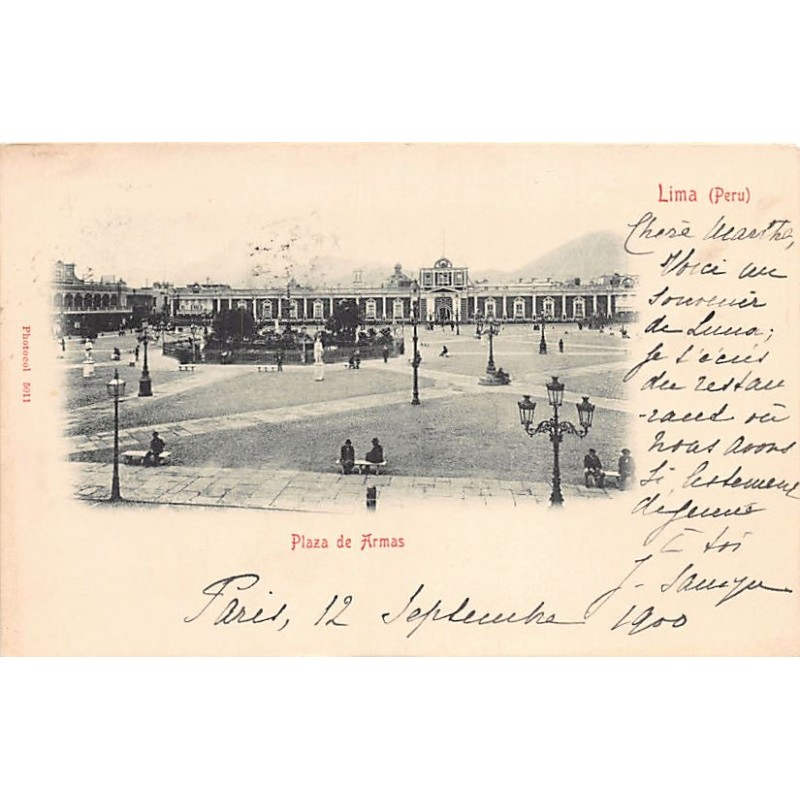 Lima (Peru)
Chère Marthe,
Voici un
souvenir
de Lima;
je t'écris
du restau
-rant où
nous avons
si lestement
déjeuné
à toi
J.
Paris, 12 Septembre 1900
Plaza de Armas
Photocol 5011